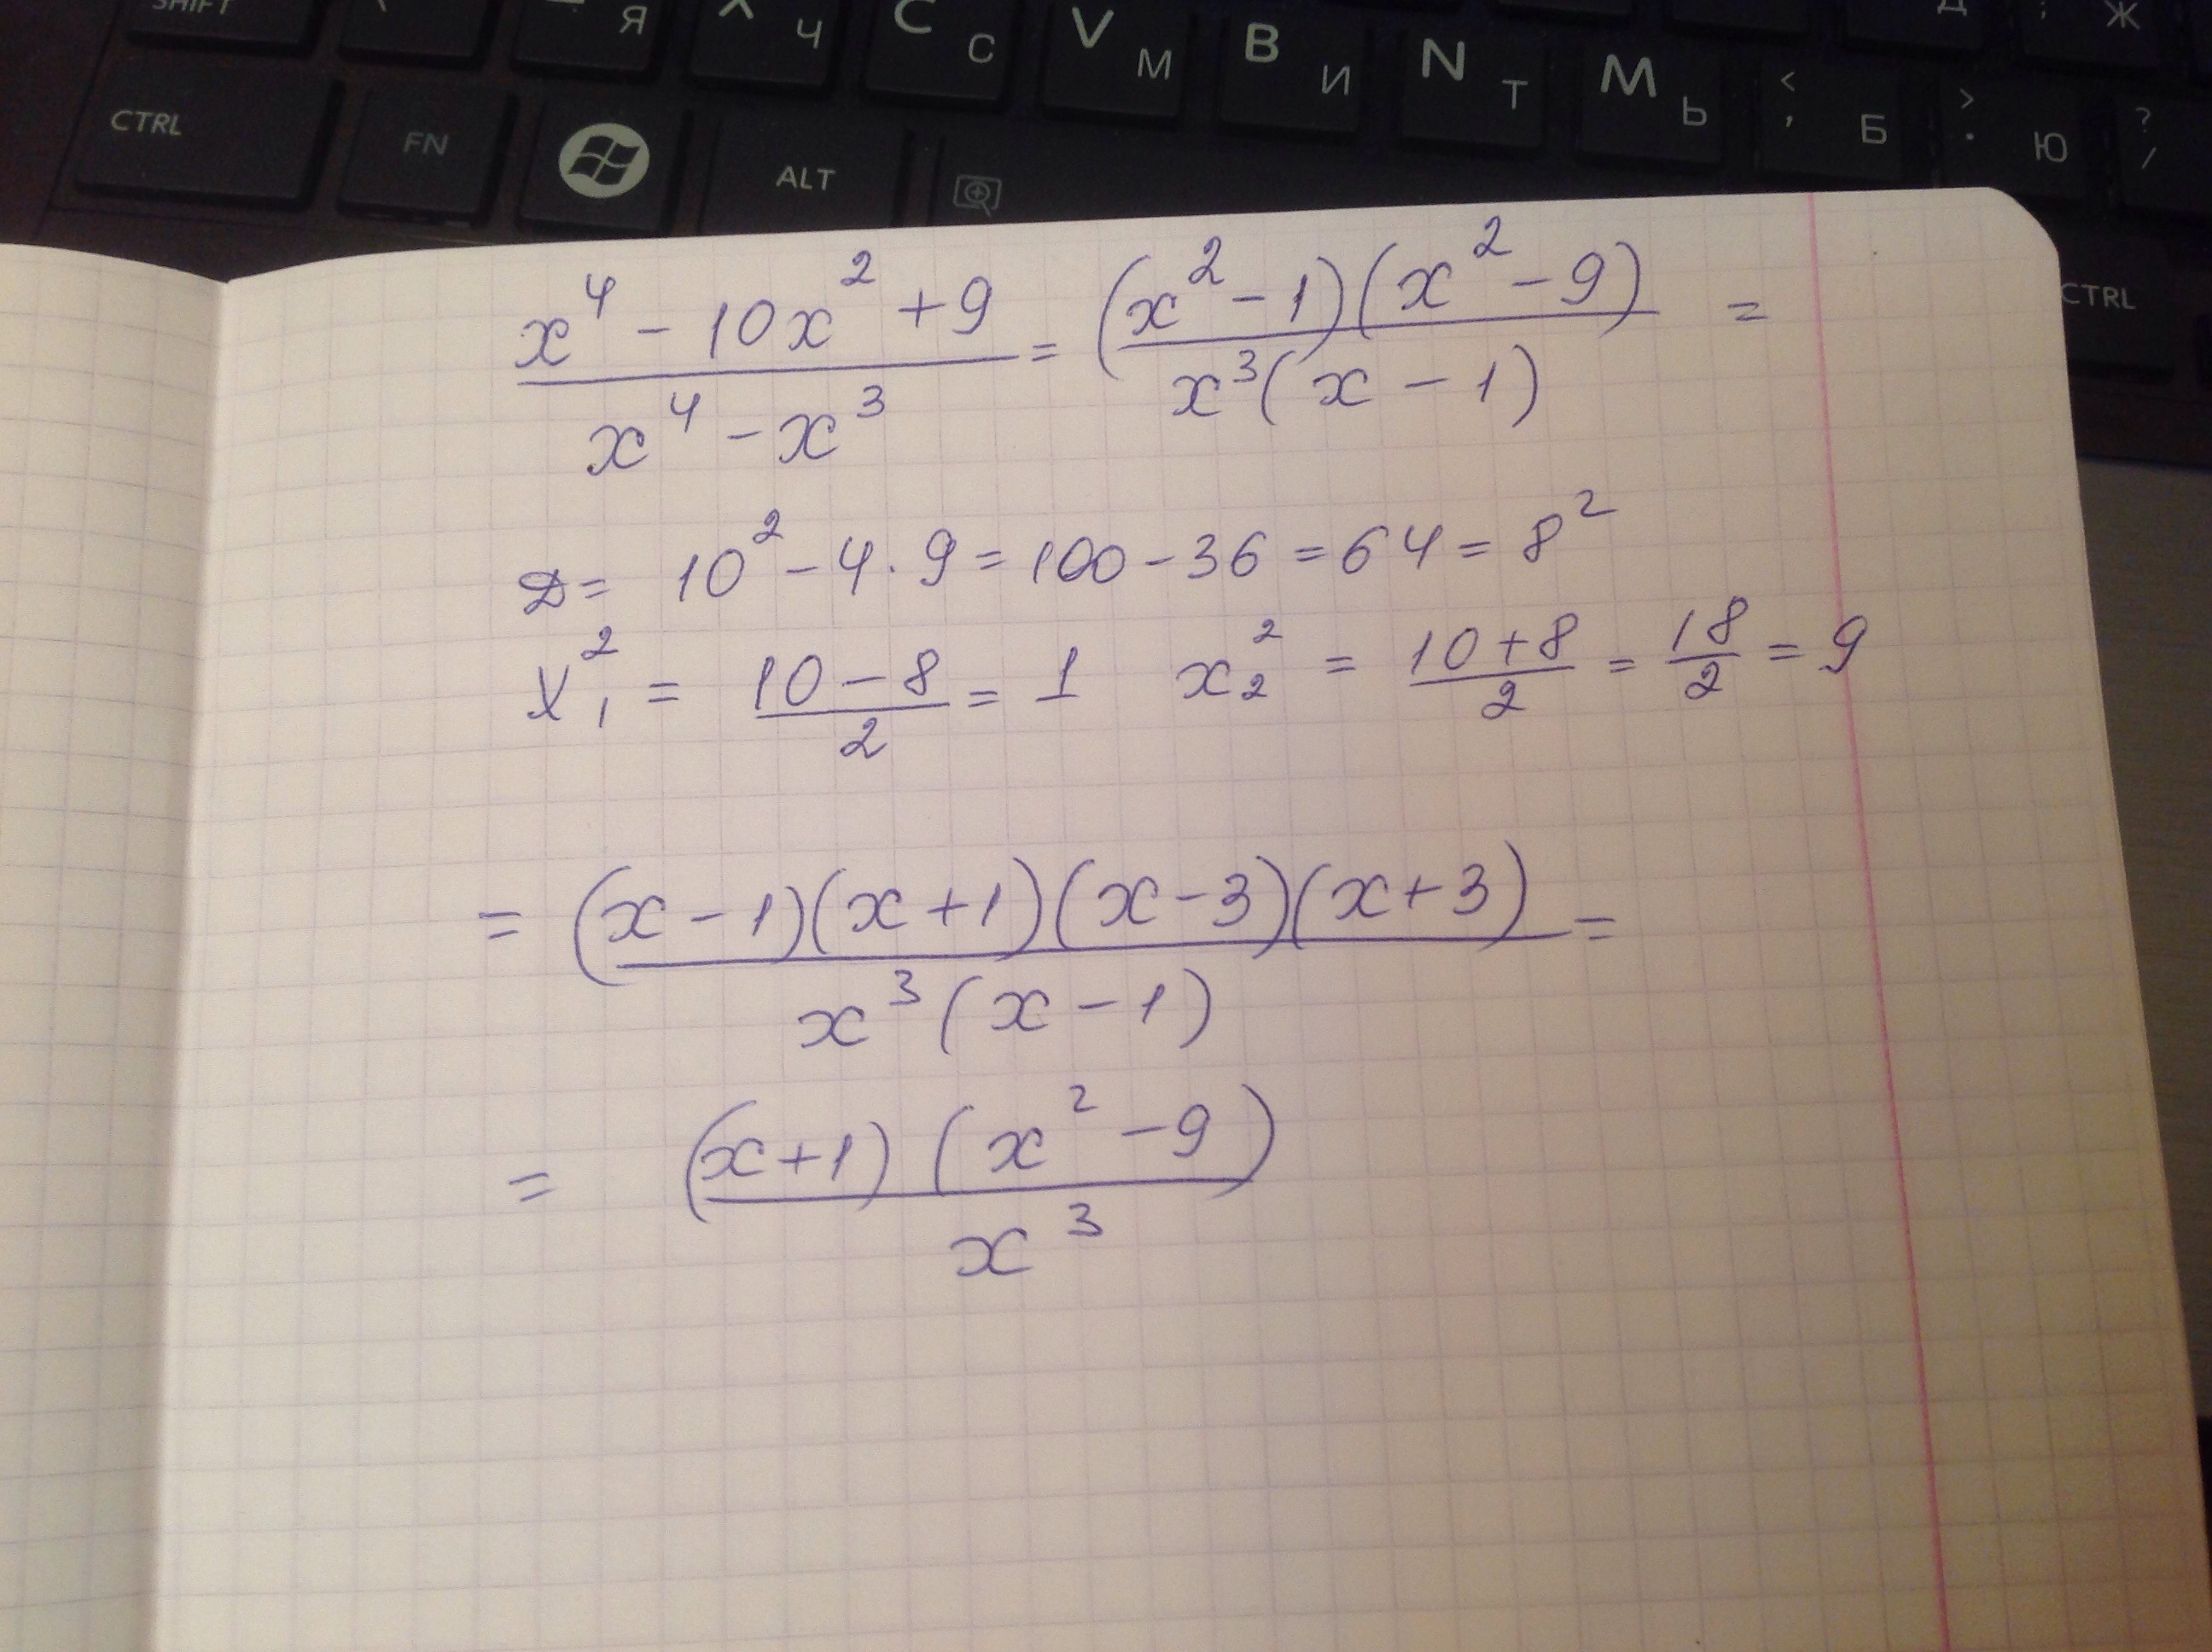 SHIFT Я Ч C С V М B И N Т M Ь < , Б > . Ю ? / Д ; Ж
CTRL FN ALT CTRL
x⁴ - 10x² + 9 / x⁴ - x³ = (x² - 1)(x² - 9) / x³(x - 1) =
D = 10² - 4 · 9 = 100 - 36 = 64 = 8²
x₁² = 10 - 8 / 2 = 1 x₂² = 10 + 8 / 2 = 18 / 2 = 9
= (x - 1)(x + 1)(x - 3)(x + 3) / x³(x - 1) =
= (x + 1)(x² - 9) / x³